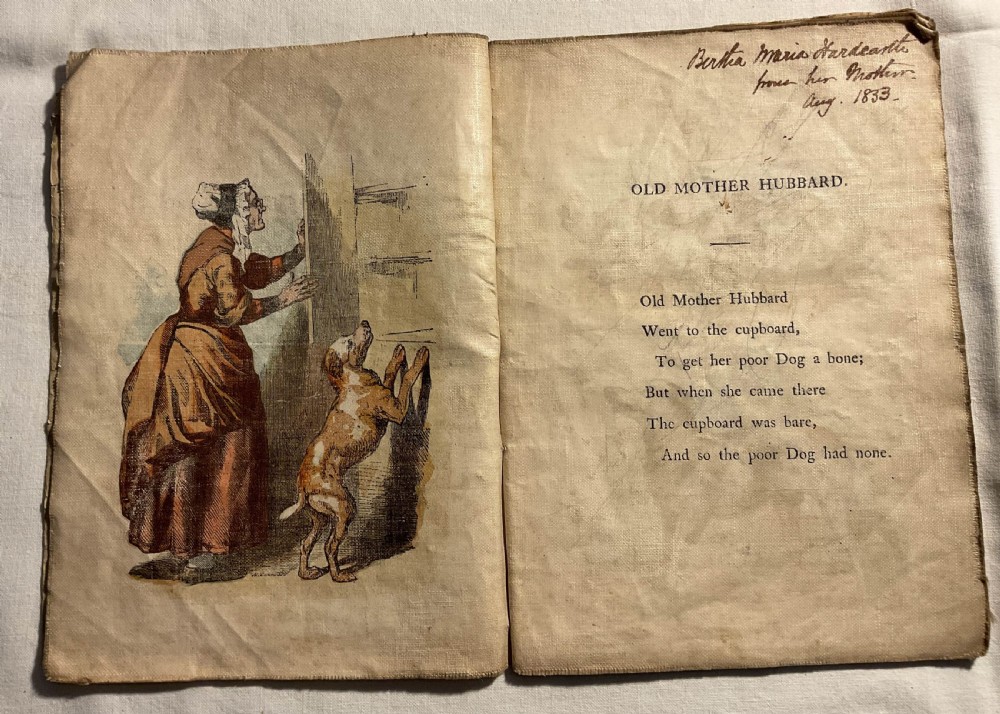 Bertha Maria Hardcastle
from her Mother
Aug. 1833_
OLD MOTHER HUBBARD.
Old Mother Hubbard
Went to the cupboard,
To get her poor Dog a bone;
But when she came there
The cupboard was bare,
And so the poor Dog had none.